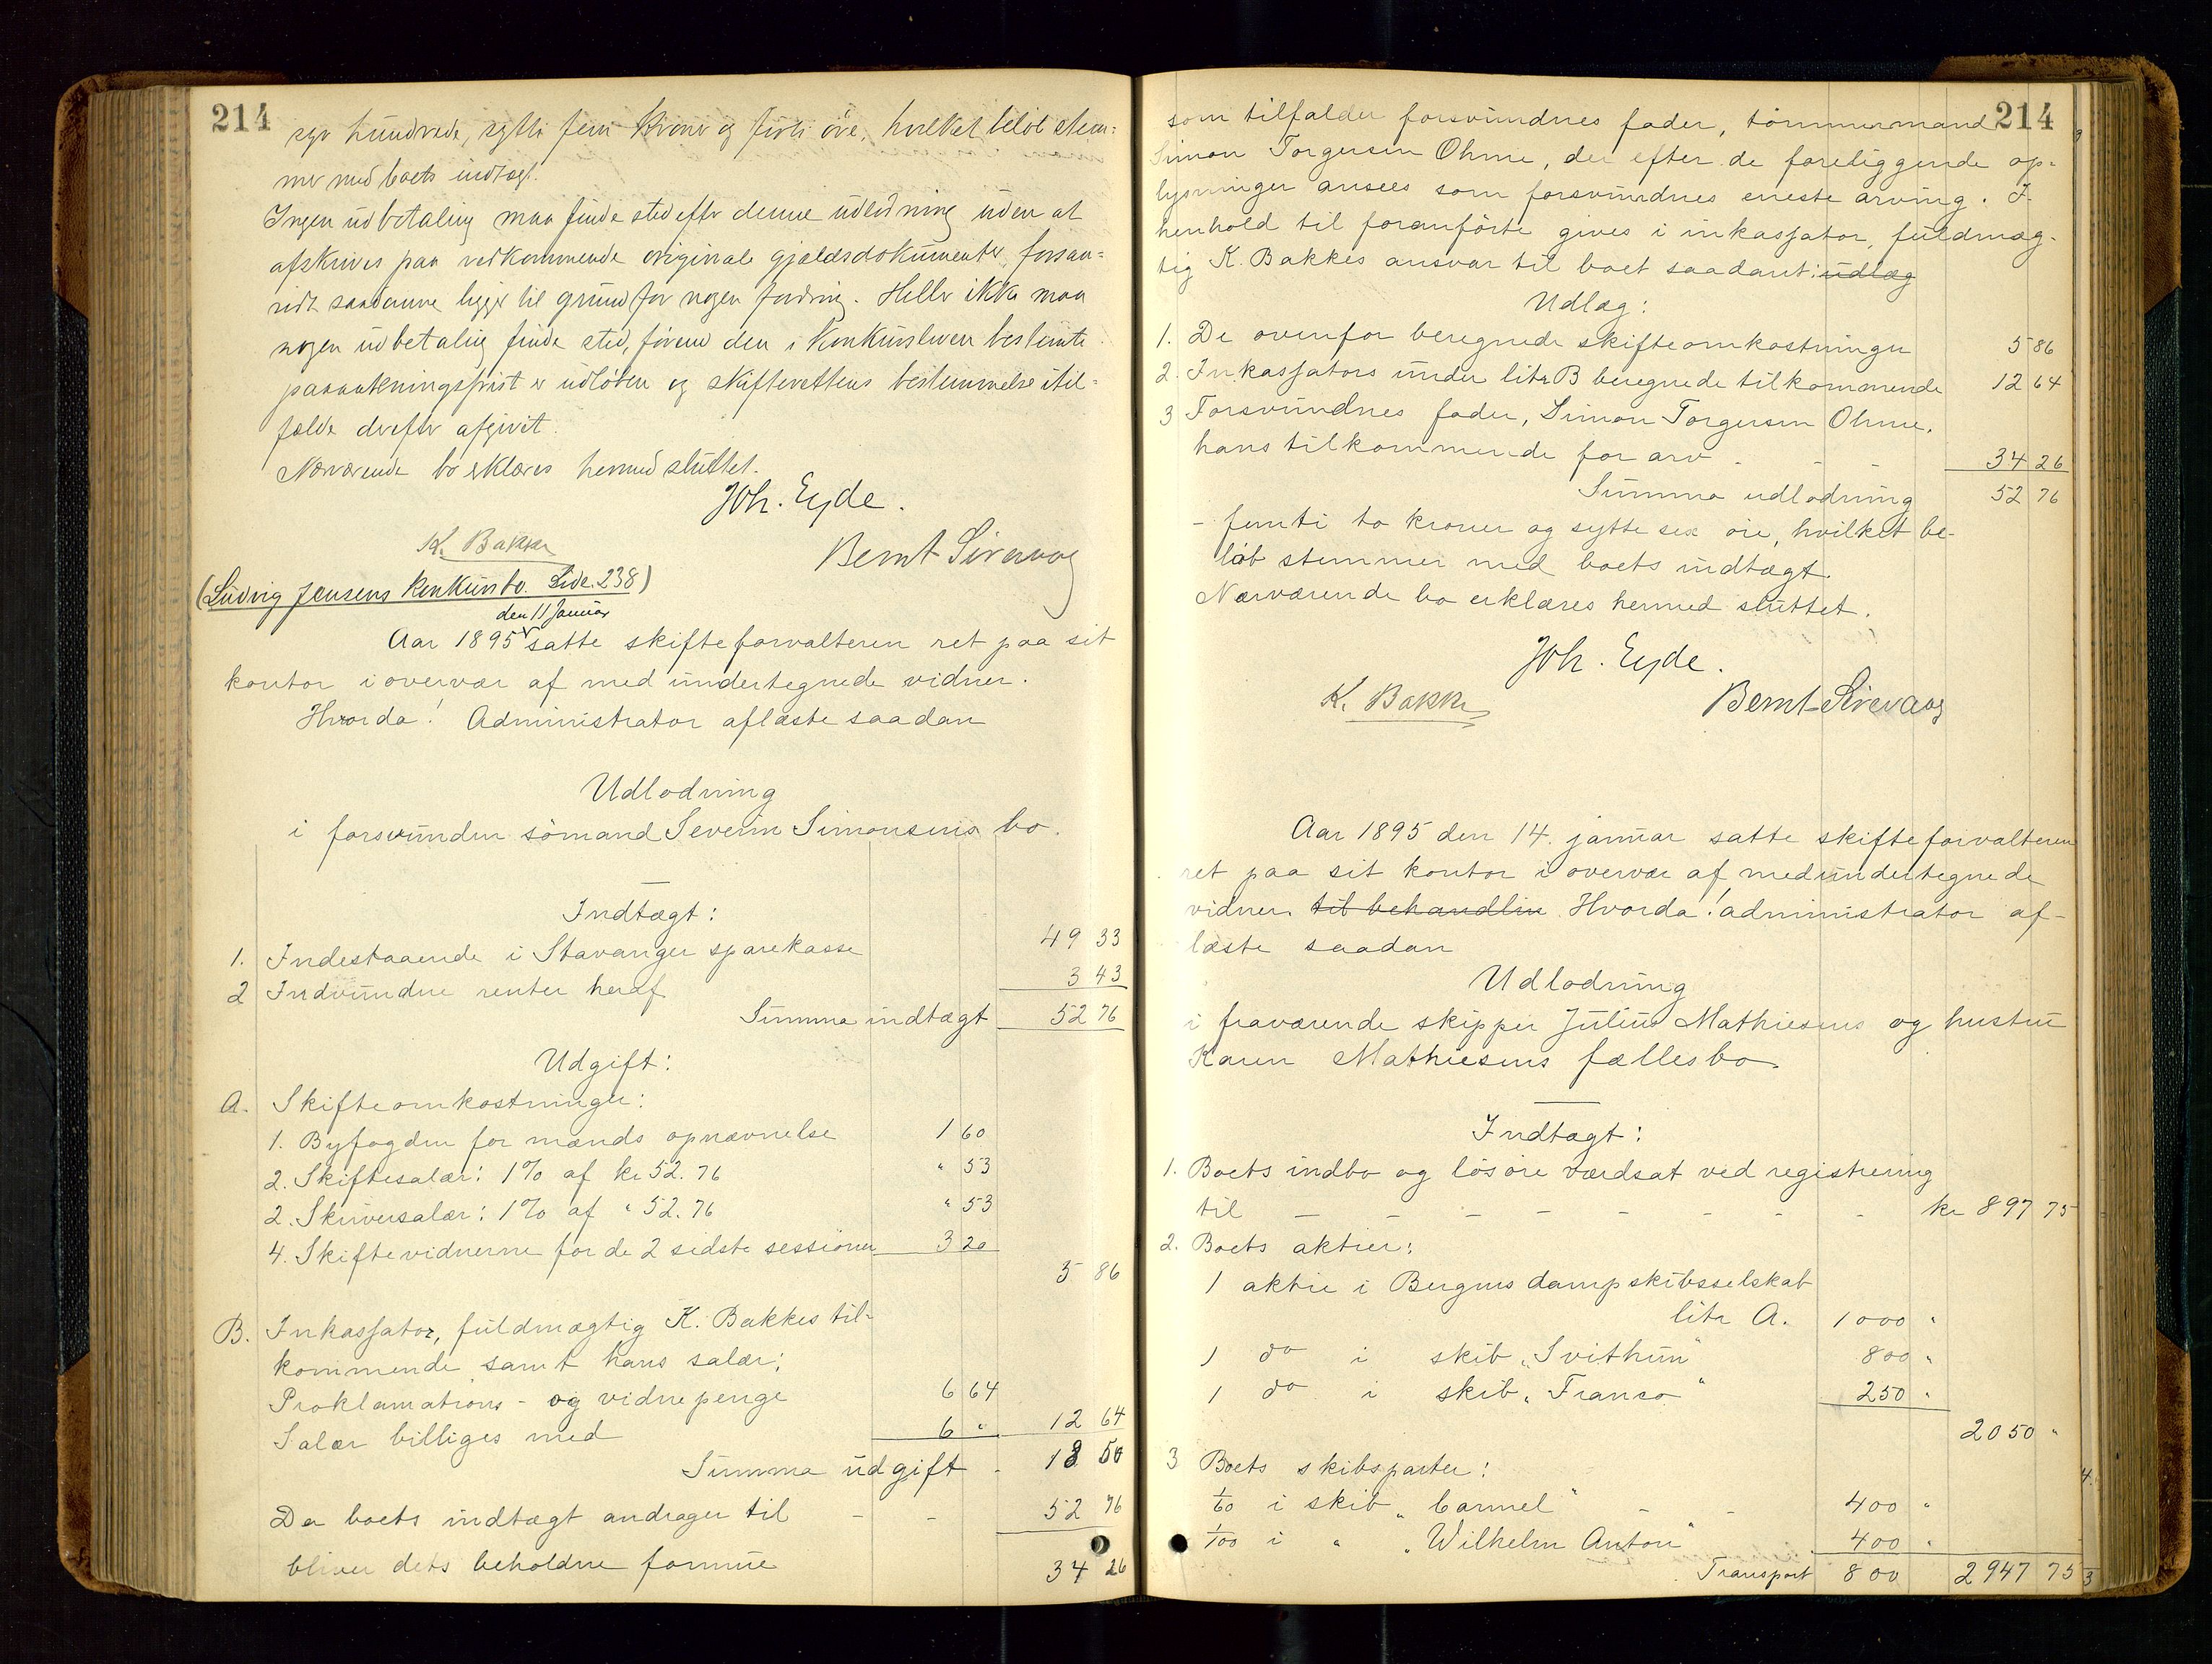 214
syv hundrede, sytti fem kroner og förti öre, hvilket belöb stem=
mer med boets indtægt.
Ingen udbetaling maa finde sted efter denne udlodning uden at
afskrives paa vedkommende originale gjældsdokumenter, forsaa=
vidt saadanne ligger til grund for nogen fordring. Heller ikke maa
nogen udbetaling finde sted, förend den i Konkursloven bestemte
paaankningsfrist er udlöben og skifterettens bestemmelse i til=
fælde derefter afgivet.
Nærværende bo erklæres hermed sluttet.
Joh. Eyde.
K. Bakke
Bernt Sirevaag
(Ludvig Jensens Konkursbo. Side. 238)
den 11 Januar
Aar 1895 satte skifteforvalteren ret paa sit
kontor i overvær af med undertegnede vidner.
Hvorda! Administrator aflæste saadan
Udlodning
i forsvunden sömand Severin Simonsens bo.
Indtægt:
1. Indestaaende i Stavanger sparekasse 49 33
2 Indvundne renter heraf 3 43
Summa indtægt 52 76
Udgift:
A. Skifteomkostninger:
1. Byfogden for mænds opnævnelse 1 60
2. Skiftesalær: 1% af kr 52.76 " 53
2. Skriversalær: 1% af " 52.76 " 53
4. Skiftevidnerne for de 2 sidste sessioner 3 20
5 86
B. Inkassator, fuldmægtig K. Bakkes til-
kommende samt hans salær:
Proklamations- og vidnepenge 6 64
Salær billiges med 6 " 12 64
Summa udgift - 18 50
Da boets indtægt andrager til - - 52 76
bliver dets beholdne formue 34 26
214
som tilfalder forsvundnes fader, tömmermand
Simon Torgersen Ohme, der efter de foreliggende op-
lysninger ansees som forsvundnes eneste arving. I
henhold til foranförte gives i inkassator, fuldmæg-
tig K. Bakkes ansvar til boet saadant: udlæg
Udlæg:
1. De ovenfor beregnede skifteomkostninger 5 86
2. Inkassators under litr B beregnede tilkommende 12 64
3 Forsvundnes fader, Simon Torgersen Ohme,
hans tilkommende for arv - - - 34 26
Summa udlodning 52 76
- femti to kroner og sytte sex öre, hvilket be-
löb stemmer med boets indtægt.
Nærværende bo erklæres hermed sluttet.
Joh. Eyde.
K. Bakke
Bernt Sirevaag
Aar 1895 den 14. januar satte skifteforvalteren
ret paa sit kontor i overvær af medundertegnede
vidner. til behandlin Hvorda! administrator af-
læste saadan
Udlodning
i fraværende skipper Julius Mathiesens og hustru
Karen Mathiesens fællesbo.
Indtægt:
1. Boets indbo og lösöre værdsat ved registrering
til - - - - - - - - kr 897 75
2. Boets aktier:
1 aktie i Bergens dampskibsselskab
litr A. 1000 "
1 do i skib „Svithun" 800 "
1 do i skib „Franco" 250 "
2050 "
3 Boets skibsparter:
1/60 i skib „Carmel" - - 400 "
1/100 i " „Wilhelm Anton" 400 "
Transport 800 2947 75